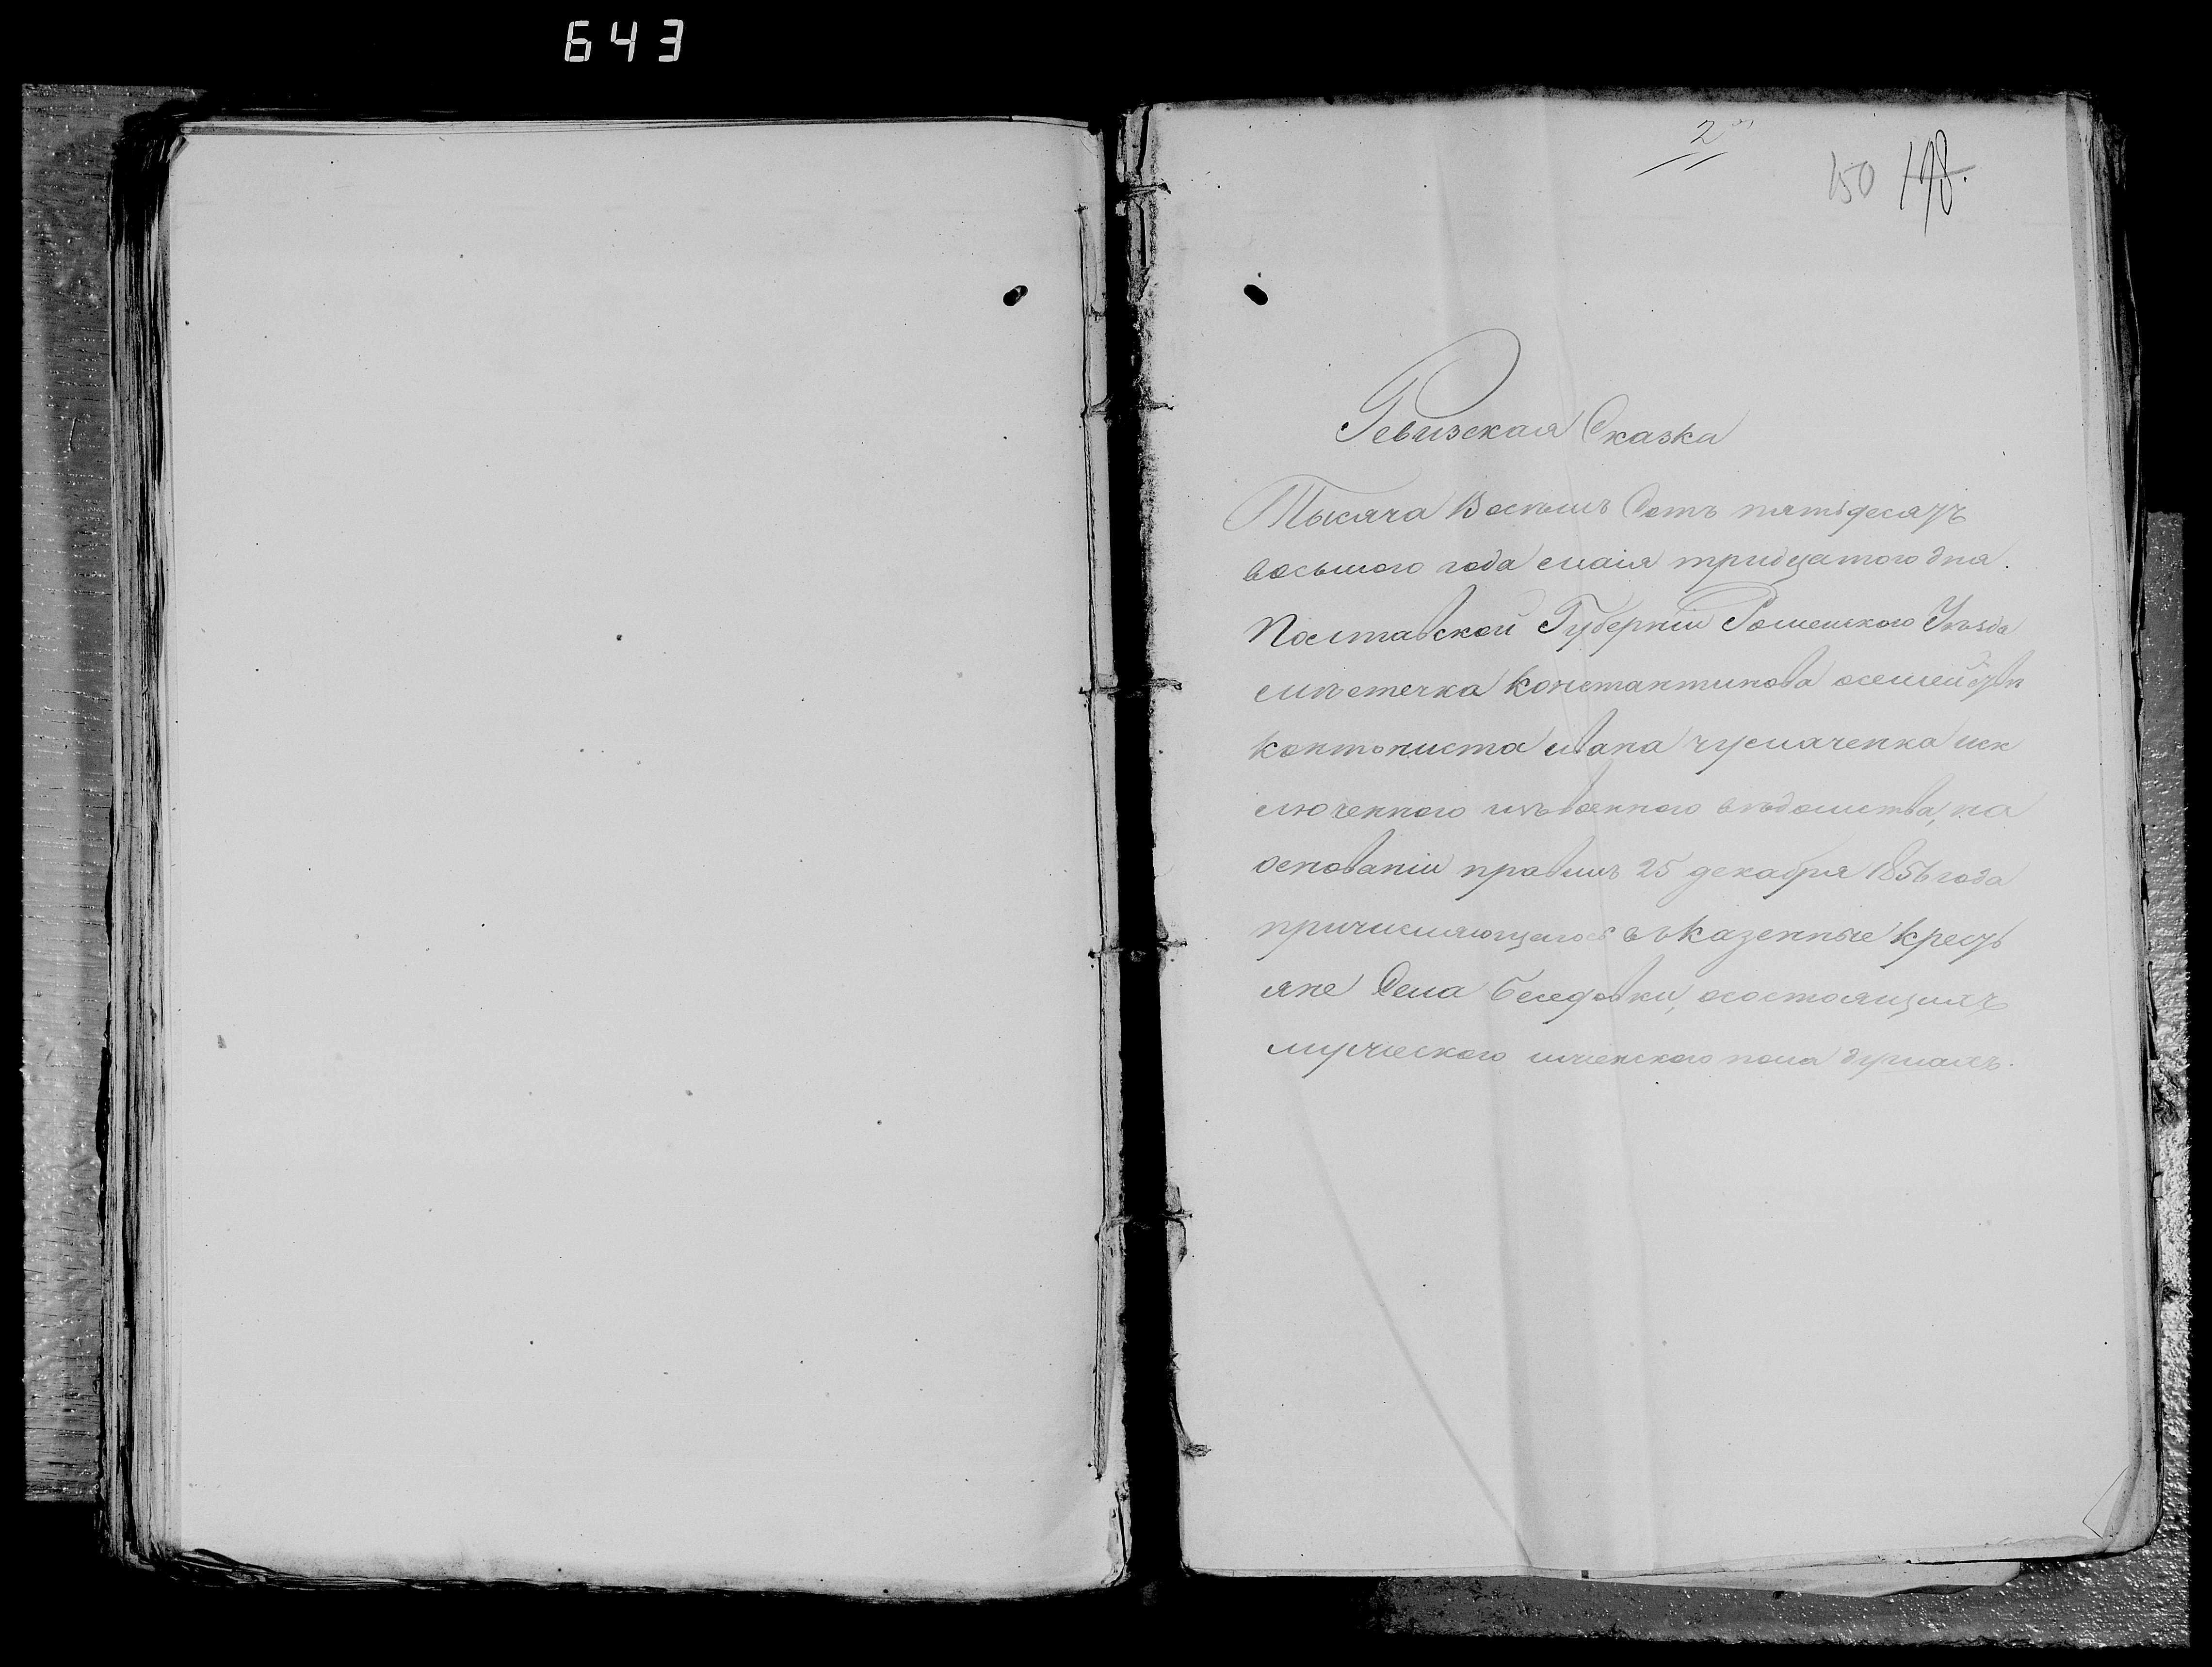 643
2
150 198.
Ревизская Сказка
Тысяча Восемь Сотъ пятьдесятъ
восьмого года маія тридцатого дня.
Полтавской Губерніи Роменского Уѣзда
мѣстечка Константинова осемействѣ
контониста ивана чумаченка иск
люченного изъвоенного вѣдомства, на
основаніи правилъ 25 декабря 1856 года
причисляющагося въказенные крестъ
яне Села Беседовки, осостоящихъ
мужеского иженского пола душахъ.